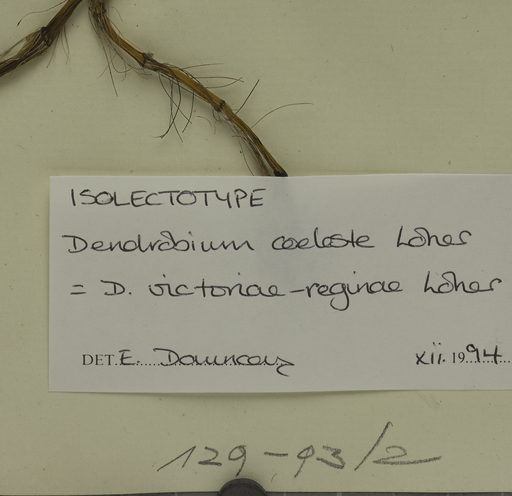 ISOLECTOTYPE
Dendrobium coeleste Loher
= D. victoriae-reginae Loher
DET. E. xii. 1994
129-93/2